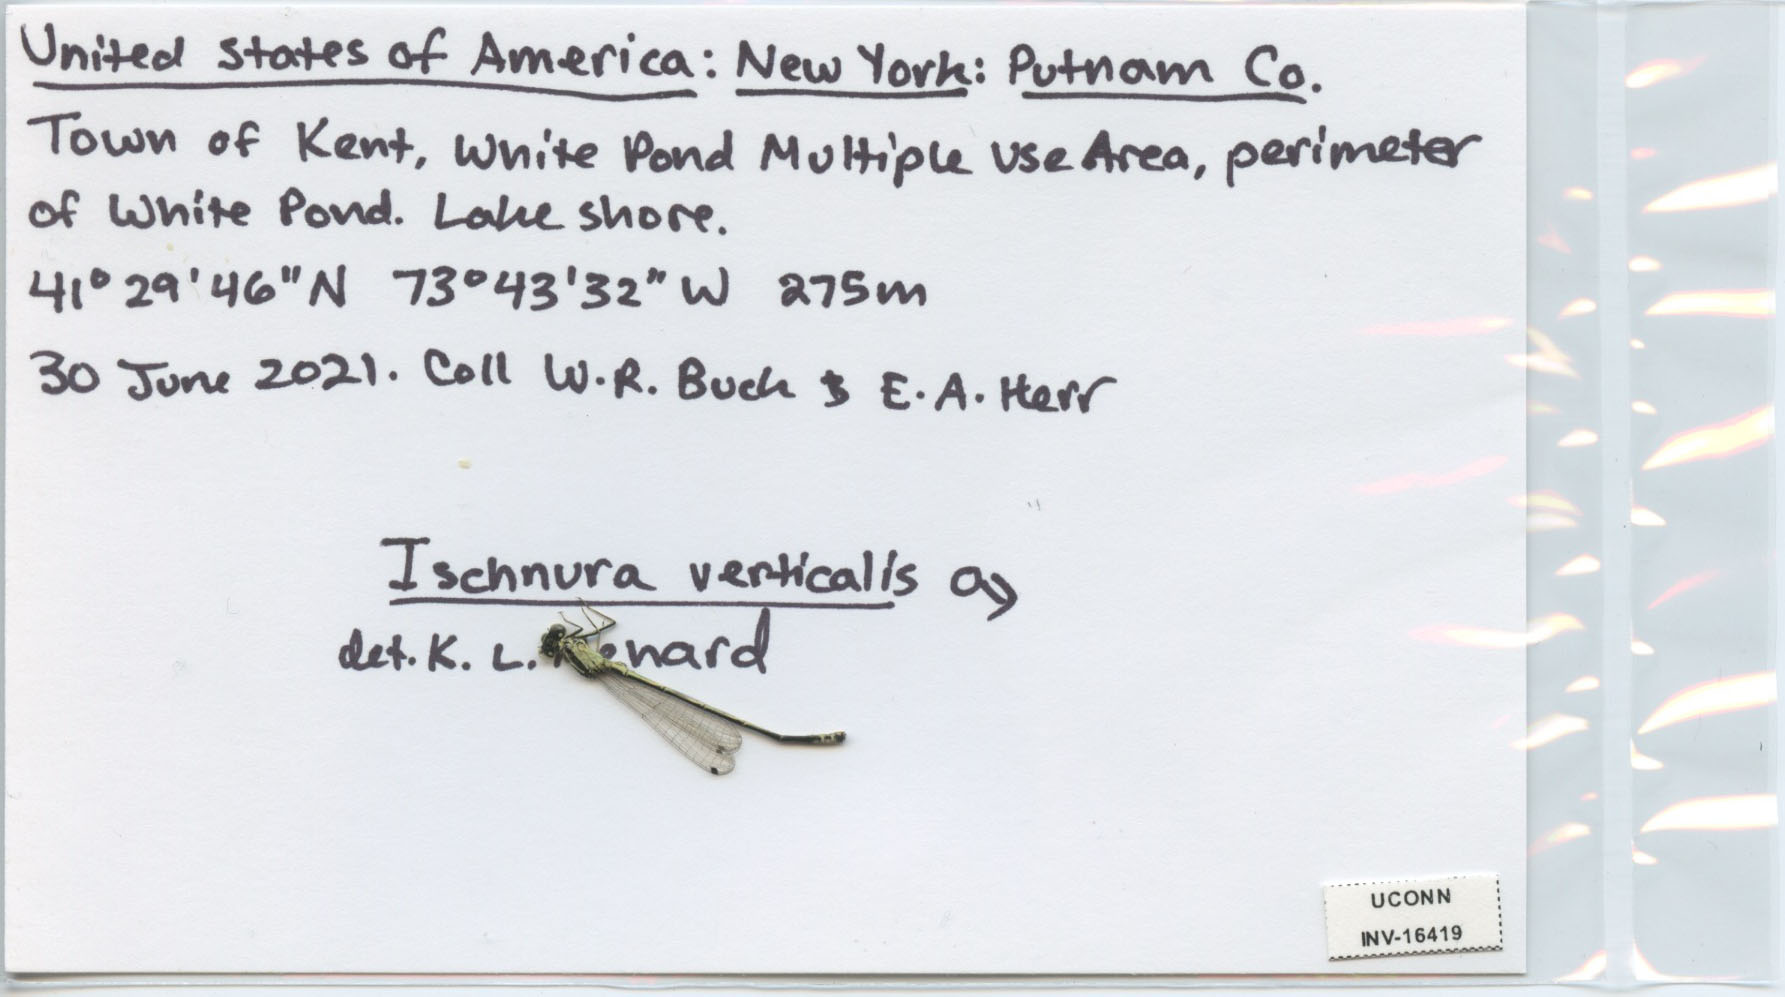 United States of America: New York: Putnam Co.
Town of Kent, White Pond Multiple Use Area, perimeter
of White Pond. Lake shore.
41° 29' 46" N 73° 43' 32" W 275m
30 June 2021. Coll W.R. Buck & E.A. Herr
Ischnura verticalis ♂
det. K. L.
UCONN
INV-16419